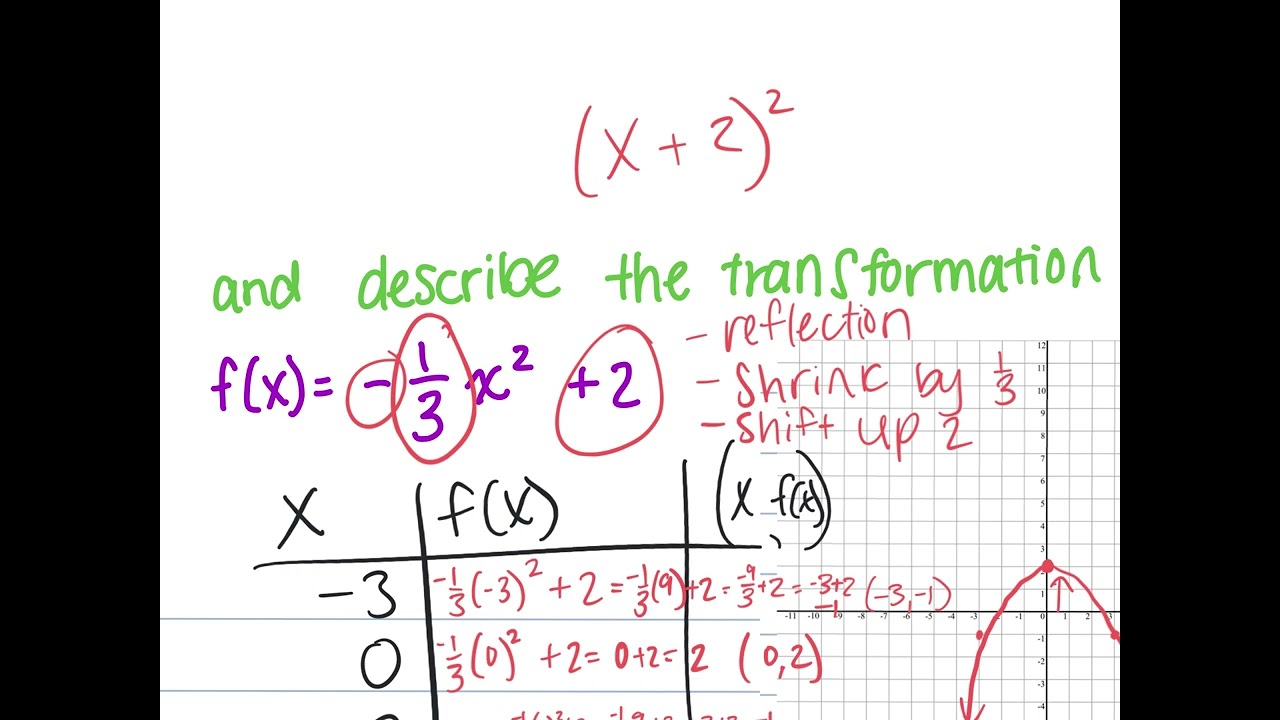 (x + 2)²
and describe the transformation
f(x) = -1/3 x² +2
- reflection
- shrink by 1/3
- shift up 2
x f(x) (x, f(x))
-3 -1/3(-3)² + 2 = -1/3(9) + 2 = -9/3 + 2 = -3+2 -1 (-3, -1)
0 -1/3(0)² + 2 = 0+2 = 2 (0, 2)
12
11
10
9
8
7
6
5
4
3
1
-11 -10 -9 -8 -7 -6 -5 -4 -3 -2 -1 0 1 2 3
-1
-2
-3
-4